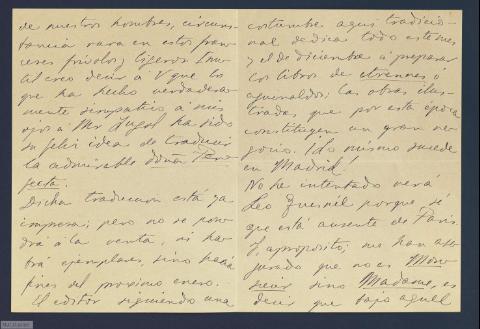 de nuestros hombres, circuns-
tancia rara en estos fran-
ceses frívolos y ligeros. Inu-
til creo decir á V que lo
que ha hecho verdadera-
mente simpatico á mis
ojos á Mr Lugol ha sido
su feliz idea de traducir
la admirable doña Per-
fecta.
Dicha traduccion está ya
impresa; pero no se pon-
drá á la venta, ni ha-
brá ejemplares, sino hacia
fines del proximo enero.
El editor siguiendo una
costumbre aqui tradicio-
nal dedica todo este mes
y el de diciembre á preparar
los libros de etrennes ó
aguinaldos; las obras ilus-
tradas que por esta época
constituyen un gran ne-
gocio. ¡Lo mismo sucede
en Madrid!
No he intentado ver á
Leo Quesnel porque sé
que está ausente de Paris.
Y, apropósito; me han ase-
gurado que no es Mon-
sieur sino Madame, es
decir que bajo aquel